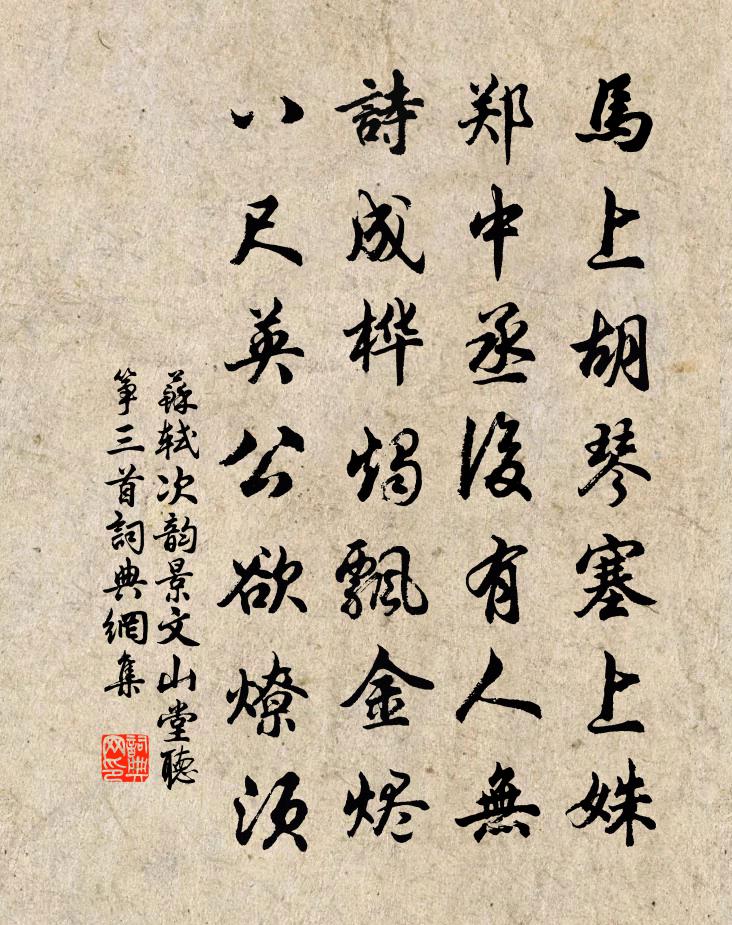 馬上胡琴塞上姝
郑中丞後有人無
詩成桦燭飄金烬
八尺英公欲燎須
蘇轼次韵景文山堂聽
筝三首詞典網集
詞典网印